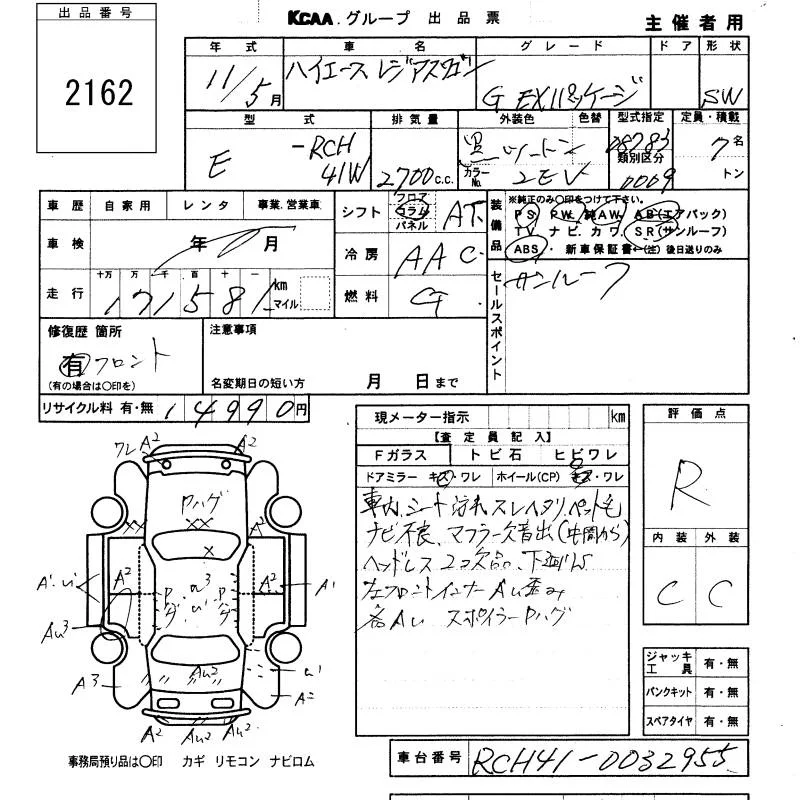 出品番号
2162
KCAA グループ 出品票
主催者用
年式 車名 グレード ドア 形状
11/5月 ハイエース レジアスワゴン G EXIIパッケージ SW
型式 排気量 外装色 色替 型式指定 定員・積載
E -RCH41W 2700c.c. 黒ツートン 08783 7名
カラーNo. 2EV 類別区分 0009 トン
車歴 自家用 レンタ 事業.営業車
シフト フロア コラム パネル AT
装備品
※純正のみ〇印をつけて下さい。
PS PW 純AW. AB(エアバック)
TV ナビ.カワ SR(サンルーフ)
ABS ・新車保証書←(注)後日送りのみ
車検 年 月
冷房 AAC
走行 十万 万 千 百 十 一
171581 km マイル
燃料 G
セールスポイント
サンルーフ
修復歴 箇所
有 フロント
(有の場合は〇印を)
注意事項
名変期日の短い方 月 日まで
リサイクル料 有・無 14990円
現メーター指示 km
【査定員記入】
Fガラス トビ石 ヒビワレ
ドアミラー キズ・ワレ ホイール(CP) キズ・ワレ
車内、シート汚れ スレ ヘタリ、ペット毛
ナビ不良、マフラー欠音出(中間から)
ヘッドレス2コ欠品、下廻りS
左フロントインナーAu歪み
各Au スポイラーPハゲ
評価点
R
内装 外装
C C
ワレ A² A²
Pハゲ
XX XX A²
X
A¹.U¹ A² A² A¹
P ハゲ u³ u¹ P ハゲ
Au³
A³ Au² u¹
A²
A² Au² Au²
ジャッキ工具 有・無
パンクキット 有・無
スペアタイヤ 有・無
事務局預り品は〇印 カギ リモコン ナビロム
車台番号 RCH41-0032955